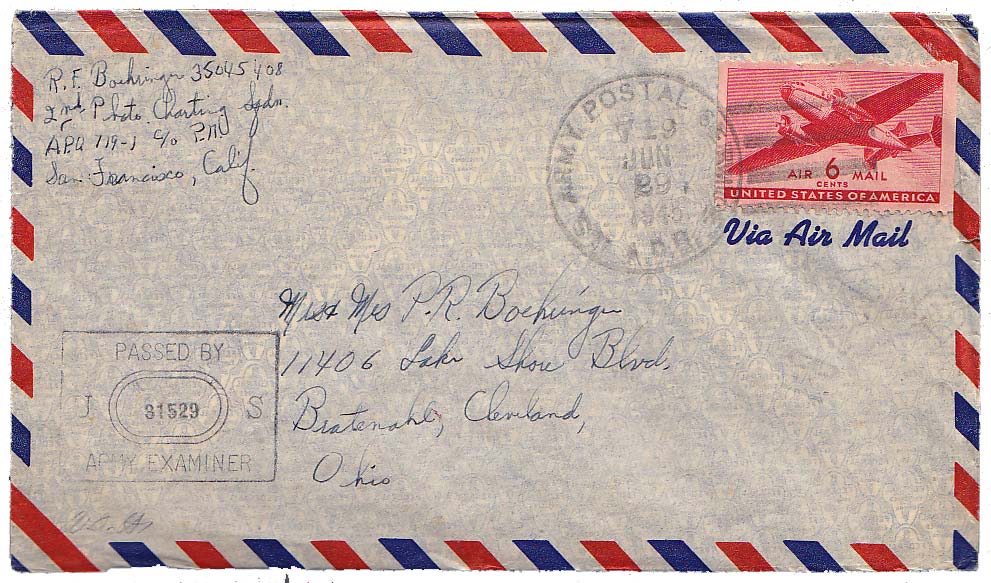 R.F. Boehringer 35045408
2nd Photo Charting Sqdn.
APO 719-1 c/o P.M.
San Francisco, Calif.
U.S. ARMY POSTAL
719
JUN
1945
A.P.O.
AIR 6 MAIL
CENTS
UNITED STATES OF AMERICA
Via Air Mail
Mr & Mrs P.R. Boehringer
11406 Lake Shore Blvd.
Bratenahl, Cleveland,
Ohio
PASSED BY
U 31529 S
ARMY EXAMINER